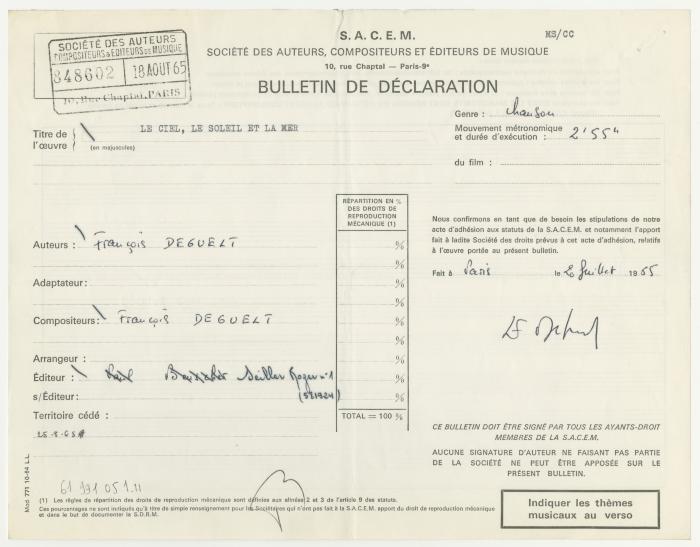 SOCIÉTÉ DES AUTEURS
COMPOSITEURS & ÉDITEURS DE MUSIQUE
348602 18 AOUT 65
10, Rue Chaptal, PARIS
S.A.C.E.M.
MS/CC
SOCIÉTÉ DES AUTEURS, COMPOSITEURS ET ÉDITEURS DE MUSIQUE
10, rue Chaptal — Paris-9e
BULLETIN DE DÉCLARATION
Titre de l'œuvre (en majuscules) LE CIEL, LE SOLEIL ET LA MER
Genre : chanson
Mouvement métronomique
et durée d'exécution : 2'55"
du film :
RÉPARTITION EN %
DES DROITS DE
REPRODUCTION
MÉCANIQUE (1)
Auteurs : François DEGUELT %
%
Adaptateur: %
%
Compositeurs: François DEGUELT %
%
Arrangeur : %
Éditeur : Seiller Roger n°1 %
s/Éditeur: (521924) %
Territoire cédé : TOTAL = 100 %
Nous confirmons en tant que de besoin les stipulations de notre
acte d'adhésion aux statuts de la S.A.C.E.M. et notamment l'apport
fait à ladite Société des droits prévus à cet acte d'adhésion, relatifs
à l'œuvre portée au présent bulletin.
Fait à Paris le 20 Juillet 1965
CE BULLETIN DOIT ÊTRE SIGNÉ PAR TOUS LES AYANTS-DROIT
MEMBRES DE LA S.A.C.E.M.
AUCUNE SIGNATURE D'AUTEUR NE FAISANT PAS PARTIE
DE LA SOCIÉTÉ NE PEUT ÊTRE APPOSÉE SUR LE
PRÉSENT BULLETIN.
Indiquer les thèmes
musicaux au verso
Mod. 771 10-64 L.L.
61 991 051.11
(1) Les règles de répartition des droits de reproduction mécanique sont définies aux alinéas 2 et 3 de l'article 9 des statuts.
Ces pourcentages ne sont indiqués qu'à titre de simple renseignement pour les Sociétaires qui n'ont pas fait à la S.A.C.E.M. apport du droit de reproduction mécanique
et dans le but de documenter la S.D.R.M.